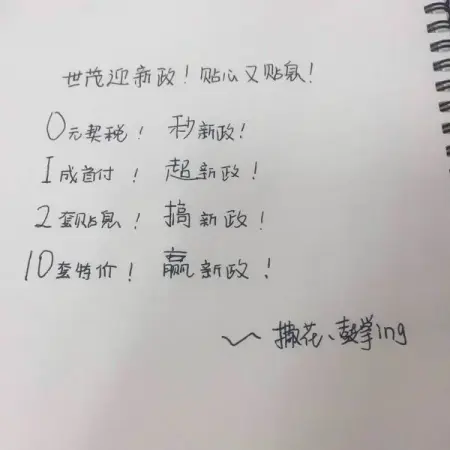 世茂迎新政！贴心又贴息！
0元契税！ 秒新政！
1成首付！ 超新政！
2套贴息！ 搞新政！
10套特价！ 赢新政！
~ 撒花、鼓掌ing